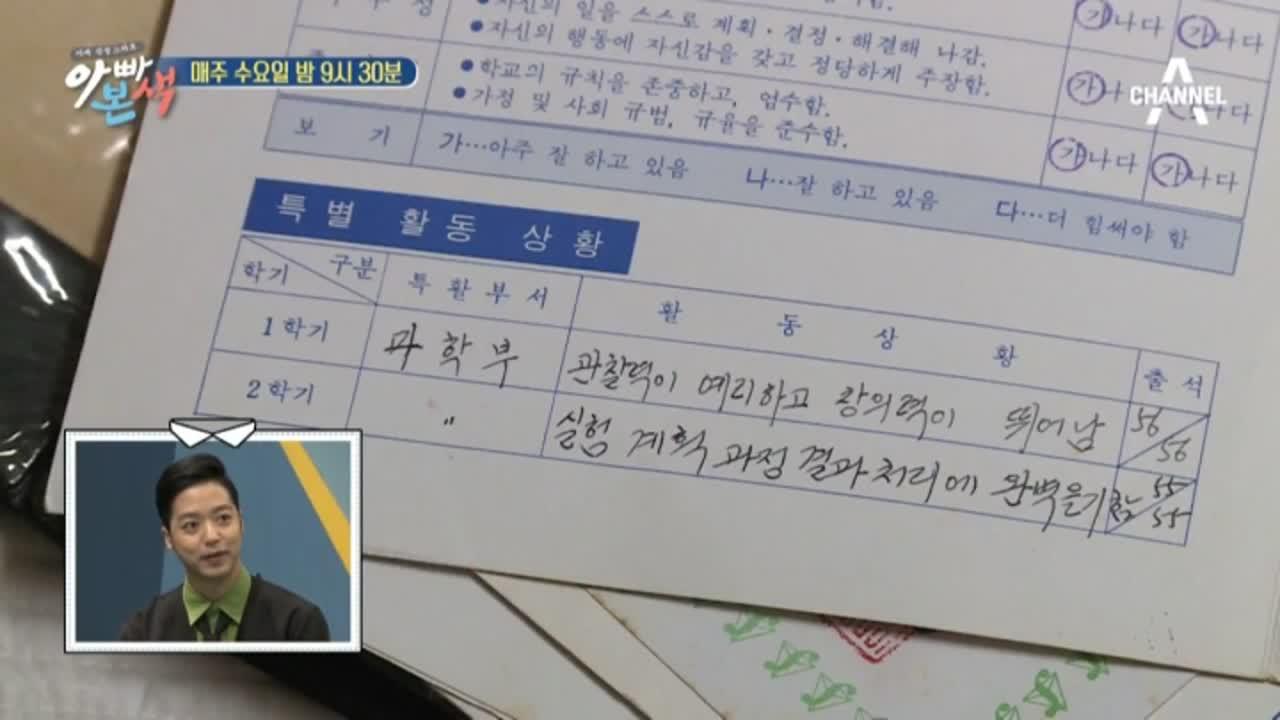 아빠본색
매주 수요일 밤 9시 30분
CHANNEL A
•자신의 일을 스스로 계획·결정·해결해 나감.
•자신의 행동에 자신감을 갖고 정당하게 주장함.
•학교의 규칙을 존중하고, 엄수함.
•가정 및 사회 규범, 규율을 준수함.
가나다 가나다
가나 나다
가나다 가나다
보 기 가…아주 잘 하고 있음 나…잘 하고 있음 다…더 힘써야 함
특별 활동 상황
학기 구분 특활부서 활동상황 출석
1학기 과학부 관찰력이 예리하고 창의력이 뛰어남 56/56
2학기 〃 실험 계획 과정 결과처리에 완벽을 기함 55/55